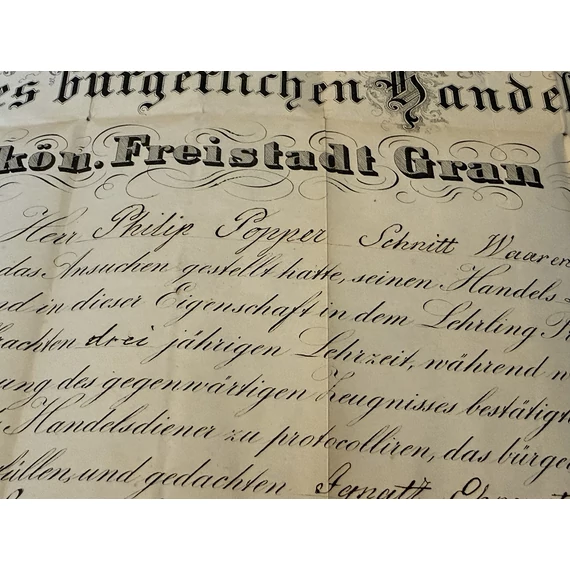 es bürgerlichen Handel
kön. Freistadt Gran
Herr Philip Popper Schnitt Waaren
das Ansuchen gestellt hatte, seinen Handels
nd in dieser Eigenschaft in dem Lehrling
achten drei jährigen Lehrzeit, während
ung des gegenwärtigen Zeugnisses bestätigt
Handelsdiener zu protocolliren, das bürge
füllen, und gedachten